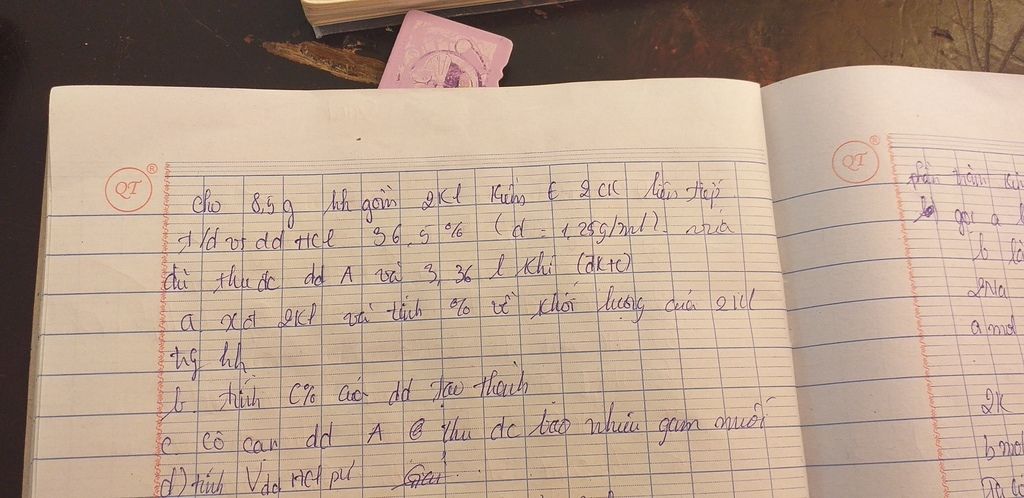 QT
QT
cho 8,5 g hh gồm 2KL kiềm € 2CK liên tiếp
t/d vs dd HCl 36,5% (d = 1,25g/ml). vừa
đủ thu đc dd A và 3,36 l khí (đktc)
a. xđ 2KL và tính % về khối lượng của 2KL
tg hh
b. tính C% của dd tạo thành
c cô cạn dd A thu đc bao nhiêu gam muối
d) tính Vdd HCl pứ
gọi a
b
2Na
a mol
2K
b mol